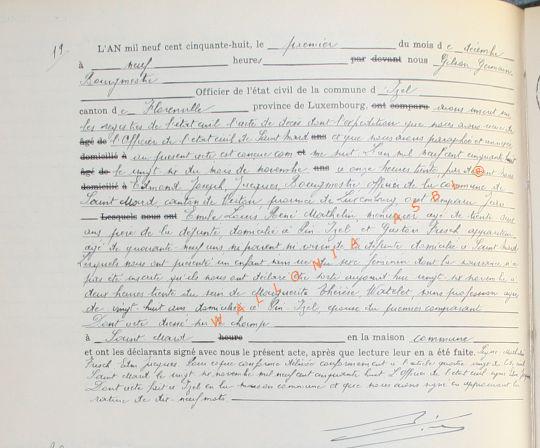 19.
L'AN mil neuf cent cinquante-huit, le premier du mois de décembre
à neuf heures par devant nous Gilson Germain
Bourgmestre
Officier de l'état civil de la commune d'Izel
canton de Florenville province de Luxembourg, ont comparu avons inscrit sur
les registres de l'état civil l'acte de décès dont l'expédition que nous avons
âgé de l'Officier de l'état civil de Saint-Mard ans et que nous avons paraphée et annexée
domicilié à au présent acte est conçue com me suit L'an mil neuf cent cinquante huit
âgé de le vingt du mois de novembre ans à onze heures trente, par devant nous
domicilié à Edmond Joseph Jacques Bourgmestre officier de la commune de
Saint Mard, canton de Virton province de Luxembourg, ont comparu
Lesquels nous ont Emile Louis René Mathelin, âgé de trente
ans père de la défunte domicilié à Pin Izel et Gustave Frisch
âgé de quarante neuf ans ni parent ni voisin de la défunte domicilié à Saint Mard
Lesquels nous ont présenté un enfant sans vie du sexe féminin dont la naissance n'a
pas été inscrite qu'ils nous ont déclaré être sorti aujourd'hui vingt novembre à
deux heures trente du sein de Marguerite Thérèse Watelet, sans profession âgée
de vingt huit ans domiciliée à Pin Izel, épouse du premier comparant
Dont acte dressé sur champ
à Saint Mard heure en la maison commune
et ont les déclarants signé avec nous le présent acte, après que lecture leur en a été faite.
Frisch Edm Jacques. Pour copie conforme délivrée conformément à
Saint Mard le vingt novembre mil neuf cent cinquante huit L'Officier de l'état civil
Dont acte fait à Izel en la maison commune et que nous avons signé en approuvant la
rature de dix neuf mots
WALLONIA ASBL ®